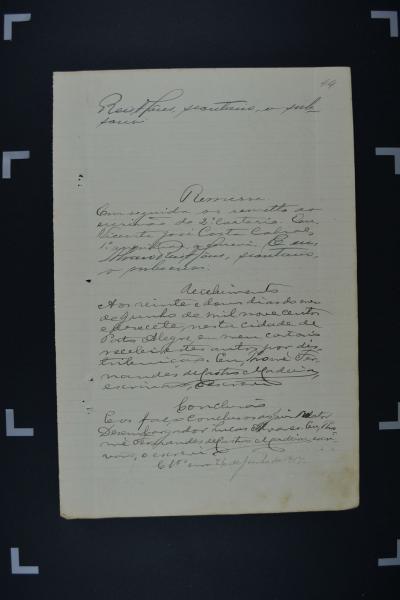 44
secretario, o sub-
Remessa
Em seguida os remetto ao
escrivão do 2º Cartorio. Eu,
Vicente José Costa Cabral,
o escrevi. E eu,
secretario,
o subscrevi.
Recebimento
Aos vinte e dous dias do mez
de Junho de mil novecentos
e dezecete, nesta cidade de
Porto Alegre, em meu cartorio
recebi estes autos por dis-
tribuição. Eu,
de Castro Madeira,
escrivão, escrevi
Conclusão
E os faço conclusos ao
Desembargador Lucas Alvares. Eu,
Fernandes de Castro Madeira, escri-
vão, o escrevi
em 26 de Junho de 917